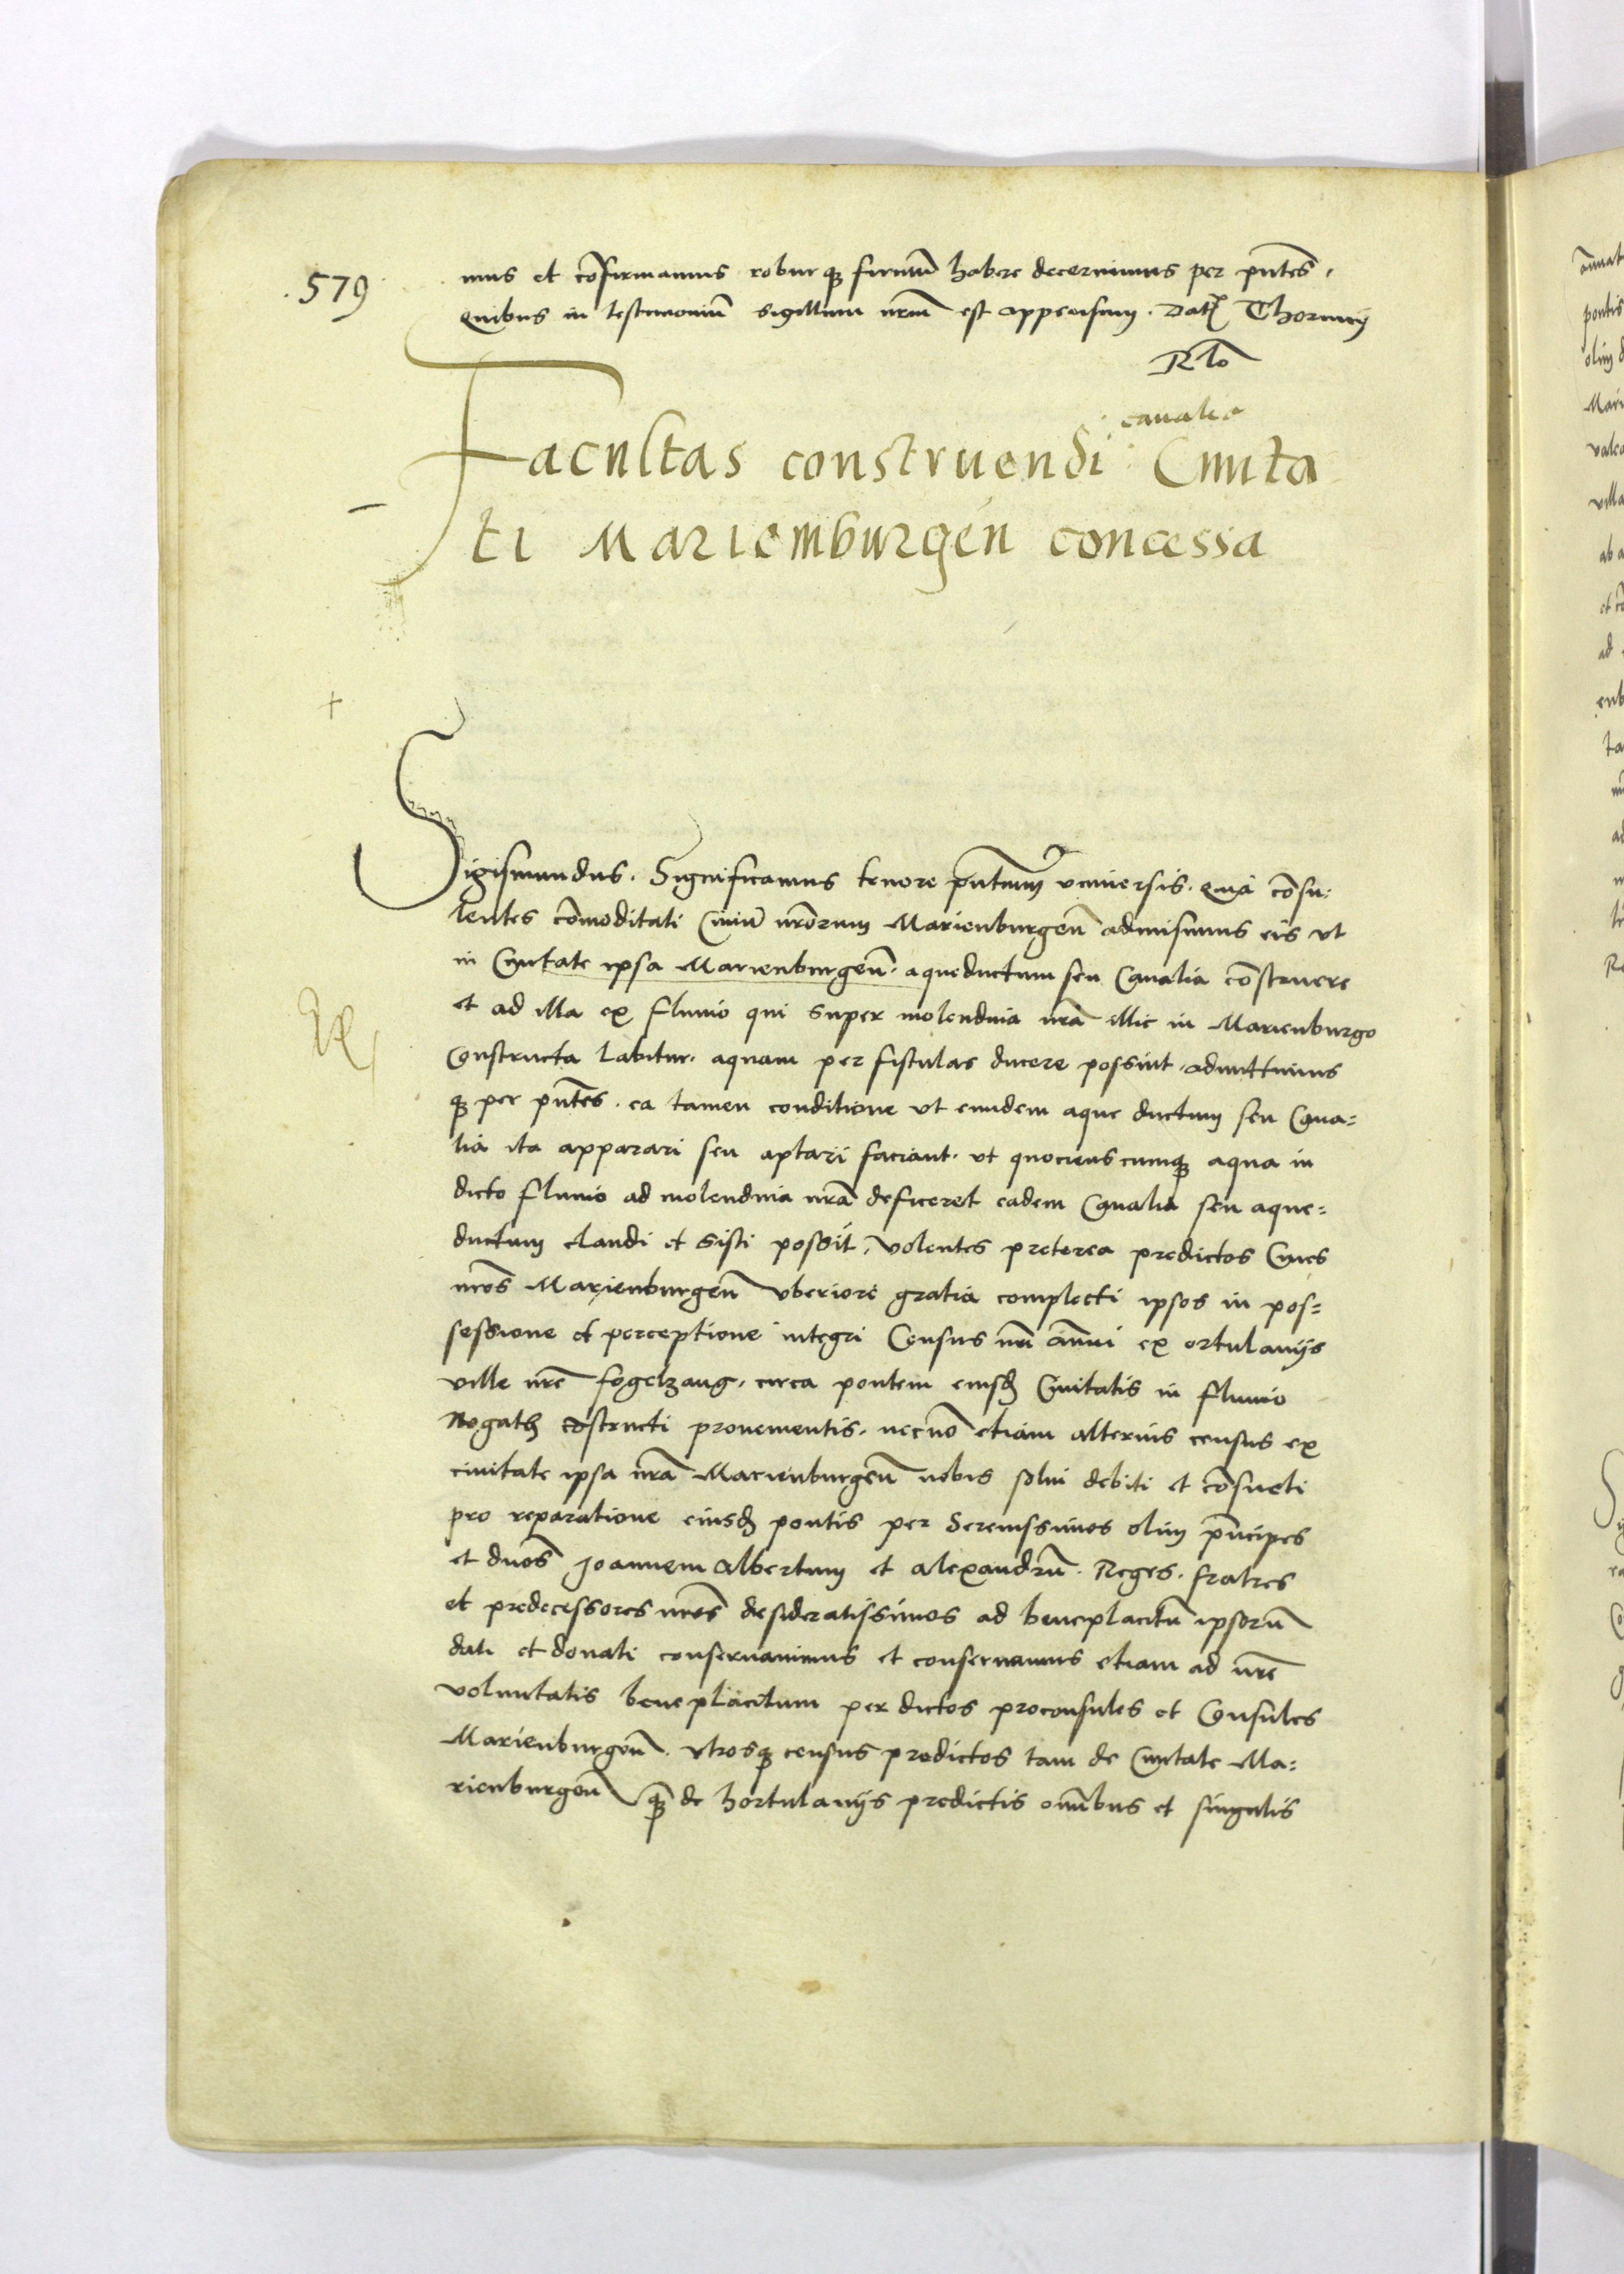 .579.
mus et cõfirmamus robur qz firmũ habere decernimus per pñtes.
Quibus in testimoniũ sigillum nrũm est appensum. Datz Thorunij
Rlõ
canalia
Facultas construendi Ciuita
ti Mariemburgeñ concessa
Sigismundus. Significamus tenore pñtium vniuersis. Quia cõsu:
lentes cõmoditati Ciuiũ nrõrum Marienburgeñ admisimus eis vt
in Ciuitate ipsa Marienburgeñ. aqueductum seu Canalia cõstruere
et ad illa ex fluuio qui super molendina nrã illic in Marienburgo
Constructa labitur. aquam per fistulas ducere possint. admittimus
qz per pñtes. ea tamen conditione vt eundem aque ductum seu Cana=
lia ita apparari seu aptari faciant. vt quocienscumqz aqua in
dicto fluuio ad molendina nrã deficeret eadem Canalia seu aque=
ductum claudi et sisti possit, Volentes preterea predictos Ciues
nrõs Marienburgeñ vberiore gratia complecti ipsos in pos=
sessione et perceptione integri Census nrĩ ãnnui ex ortulanijs
ville nrẽ fogelzang. circa pontem eiusd Ciuitatis in fluuio
Nogath cõstructi prouenientis. necnõ etiam alterius census ex
ciuitate ipsa nrã Marienburgeñ nobis solui debiti et cõsueti
pro reparatione eiusd pontis per Serenissimos olim pñcipes
et dños Joannem Albertum et Alexandrũ. Reges. fratres
et predecessores nrõs desideratissimos ad beneplacitũ ipsorũ
dati et donati conseruauimus et conseruamus etiam ad nrẽ
voluntatis beneplacitum per dictos proconsules et Consules
Marienburgeñ. vtrosqz census predictos tam de Ciuitate Ma=
rienburgeñ qz de hortulanijs predictis omĩbus et singulis